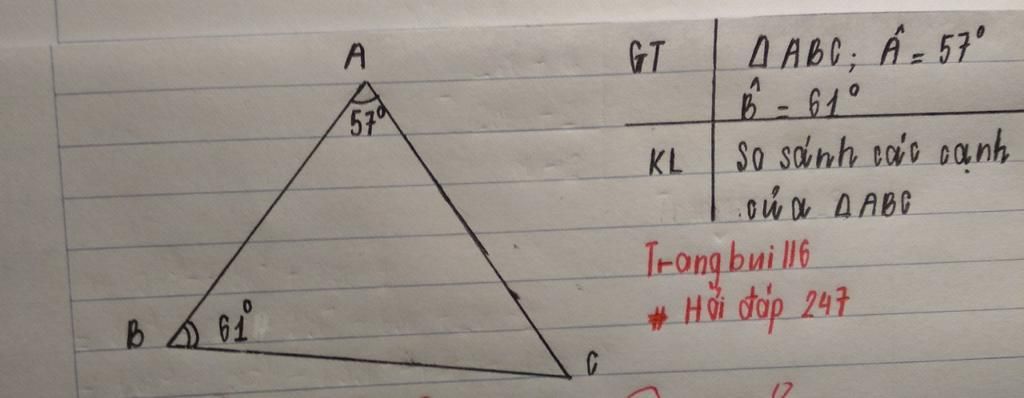 A
57°
B
61°
C
GT
Δ ABC; Â = 57°
B̂ = 61°
KL
So sánh các cạnh
của Δ ABC
Trangbui116
# Hỏi đáp 247